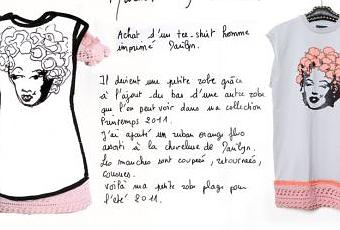 Achat d'un tee-shirt homme
imprimé Marilyn.
Il devient une petite robe grâce
à l'ajout du bas d'une autre robe
que l'on peut voir dans ma collection
Printemps 2011.
J'ai ajouté un ruban orange fluo
assorti à la chevelure de Marilyn.
Les manches sont coupées, retournées,
cousues.
Voilà ma petite robe plage pour
l'été 2011.